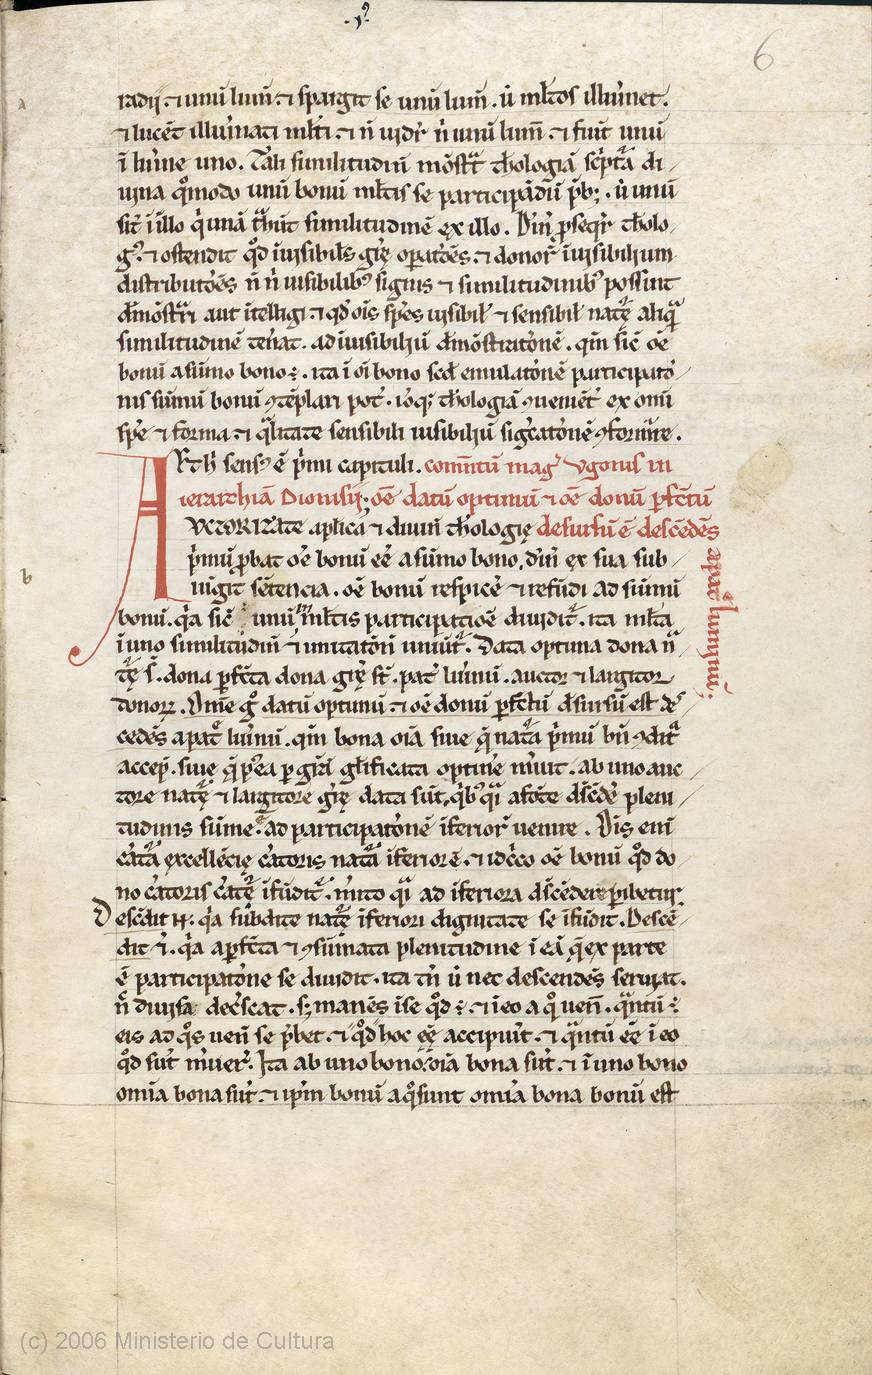 ·v°
6
radij. ⁊ unū lum̄. ⁊ spargit se unū lum̄. ú ml̃tos illūinet.
⁊ lucēt illūinati ml̃ti. ⁊ ñ uidr̃ ñ unū lum̄. ⁊ fiūt unū
ī lūine uno. Tali similitudinē mōstͣt thologiā scͥptā di
uina qͦmodo unū bonū ml̃tis se participādū p̃b&. ú unū
sit ī illo similitudinē ex illo. Dīn p̃seqͥr tholo
gꝰ. ⁊ ostendit qͦd īuisibiles gr̃ę opatōes. ⁊ donoꝝ īuisibilium
distributōes ñ ñ uisibilibꝰ signis ⁊ similitudinibꝰ possunt
dmōstͣri aut ītelligi. ⁊ qd oīs spēs uisibil̃ ⁊ sensibil̃ natͣę aliqͣ
similitudinē teneat. ad īuisibiliū dmōstratōnē. qm̄ sic̄ oē
bonū a sūmo bono ē. ita ī oī bono scd̄ emulatōnē participatō
nis sūmū bonū ɔtēplari pot̄. thologiā ɔuenient̄ ex omī
spē ⁊ forma ⁊ qͣlitate sensibili īuisibiliū sigͥcatōnē ɔformare.
ic̄ sensꝰ ē pͥmi capituli. com̄tū mag̃ Vgonis in
ierarchiā Dionisij. oē datū optimū ⁊ oē donū ꝑfectū
AVCTORITate aplica ⁊ diuini thologię desursū ē descēdēs
apatͤ luminū;
pͥmū ꝓbat oē bonū eē a sūmo bono. dīn ex sua sub
iūgit sētencia. oē bonū respicē ⁊ refūdi ad sūmū
bonū. qͥa sic̄ unū ī ml̃tis participatiōe diuidit̃. ita ml̃ta
ī uno similitudinē ⁊ unitatōni uniūt̃. Data optima dona nͣ
tͣę s̃. dona ꝑfecta dona gr̃ę st̄. pat̄ lūinū. auctor ⁊ largitor
donoꝝ. Omne gͦ datū optimū. ⁊ oē donū ꝑfectū dsursū est des
cedēs a patͤ lūinū. qm̄ bona oīa siue qͤ natͣa pͥmū bn̄ ɔditͣ
accep̄. siue qͤ pͦstea p gr̃am gl̃ificata optime meruit. ab uno auc
tore natͣę ⁊ largitore gr̃ę data sūt. qͥbꝰ qͣsi a fōte dscēdē pleni
tudinis sūme. ad participatōnē iferioꝝ uenire. Oīs enī
cͬatͣa excellēcię cͬatoris natͣā iferiorē. ⁊ idcͥco oē bonū qͦd do
no cͬatoris cͬatͣę ifūdit̃. mͥto qͣsi ad iferiora dscēdere ꝑibetur.
Descēdit n̄. qͥa subdite natͣę iferiori dignitate se ifūdit. Descē
dit ⁊. qͥa a ꝑfecta ⁊ ɔsūmata plenitudine ī eā qͤ ex parte
ē participatōne se diuidit. ita tn̄ ú nec descendēs seruiat.
ñ diuisa decͬscat. s; manēs īse qͦd ē. ⁊ ī eo a qͦ ueñ. qͣntū ē
eis ad qͦs ueñ se pͥbet. ⁊ qͦd hoc eę accipiūt. ⁊ qͣntū eē ī eo
qͦd sūt inuenīt̃. Ita ab uno bono oīa bona sūt. ⁊ ī uno bono
omīa bona sūt. ⁊ ipm̄ bonū a qͦ sunt omīa bona bonū est
a
b
(c) 2006 Ministerio de Cultura